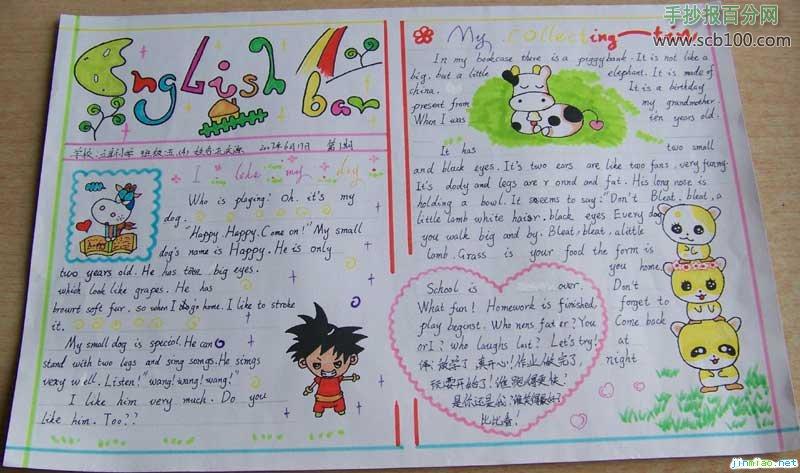 English bar
2007年6月17日 第1期
I like my dog
Who is playing? Oh. it's my
dog.
"Happy. Happy. Come on!" My small
dog's name is Happy. He is only
two years old. He has two big eyes.
which look like grapes. He has
brourt soft fur. so when I do's home. I like to stroke
it.
My small dog is special. He can
stand with two legs and sing songs. He sings
very well. Listen! "wang! wang! wang!"
I like him very much. Do you
like him. Too??
happy
My collecting
In my bookcase there is a piggy bank. It is not like a
big. but a little elephant. It is made of
china. It is a birthday
present from my grandmother.
When I was ten years old.
It has two small
and black eyes. It's two ears are like two fans, very funny.
It's dody and legs are r onnd and fat. His long nose is
holding a bowl. It seems to say: "Don't Bleat, bleat, a
little lamb white hair. black eyes Every day
you walk big and by. Bleat, bleat, alittle
lomb. Grass is your food the form is
you home,
Don't
forget to
Come back
at
night
School is over.
What fun! Homework is finished,
play begins. Who runs faster? You
or I? Who laughs last? Let's try!
放学了真开心!作业做完了,
玩耍开始了!谁跑得更快?
是你还是我?谁笑得最好?
比比看!
手抄报百分网
www.scb100.com
jinmiao.net